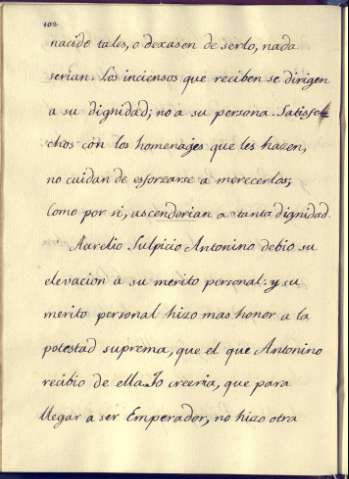 102
nacido tales, o dexasen de serlo, nada
serian. Los inciensos que reciben se dirigen
a su dignidad; no a su persona. Satisfe-
chos con los homenages que les hazen,
no cuidan de esforzarse a merecerlos;
como por si, ascenderian a tanta dignidad.
Aurelio Sulpicio Antonino debio su
elevacion à su merito personal: y su
merito personal hizo mas honor a la
potestad suprema, que el que Antonino
recibio de ella. Yo creeria, que para
llegar a ser Emperador, no hizo otra